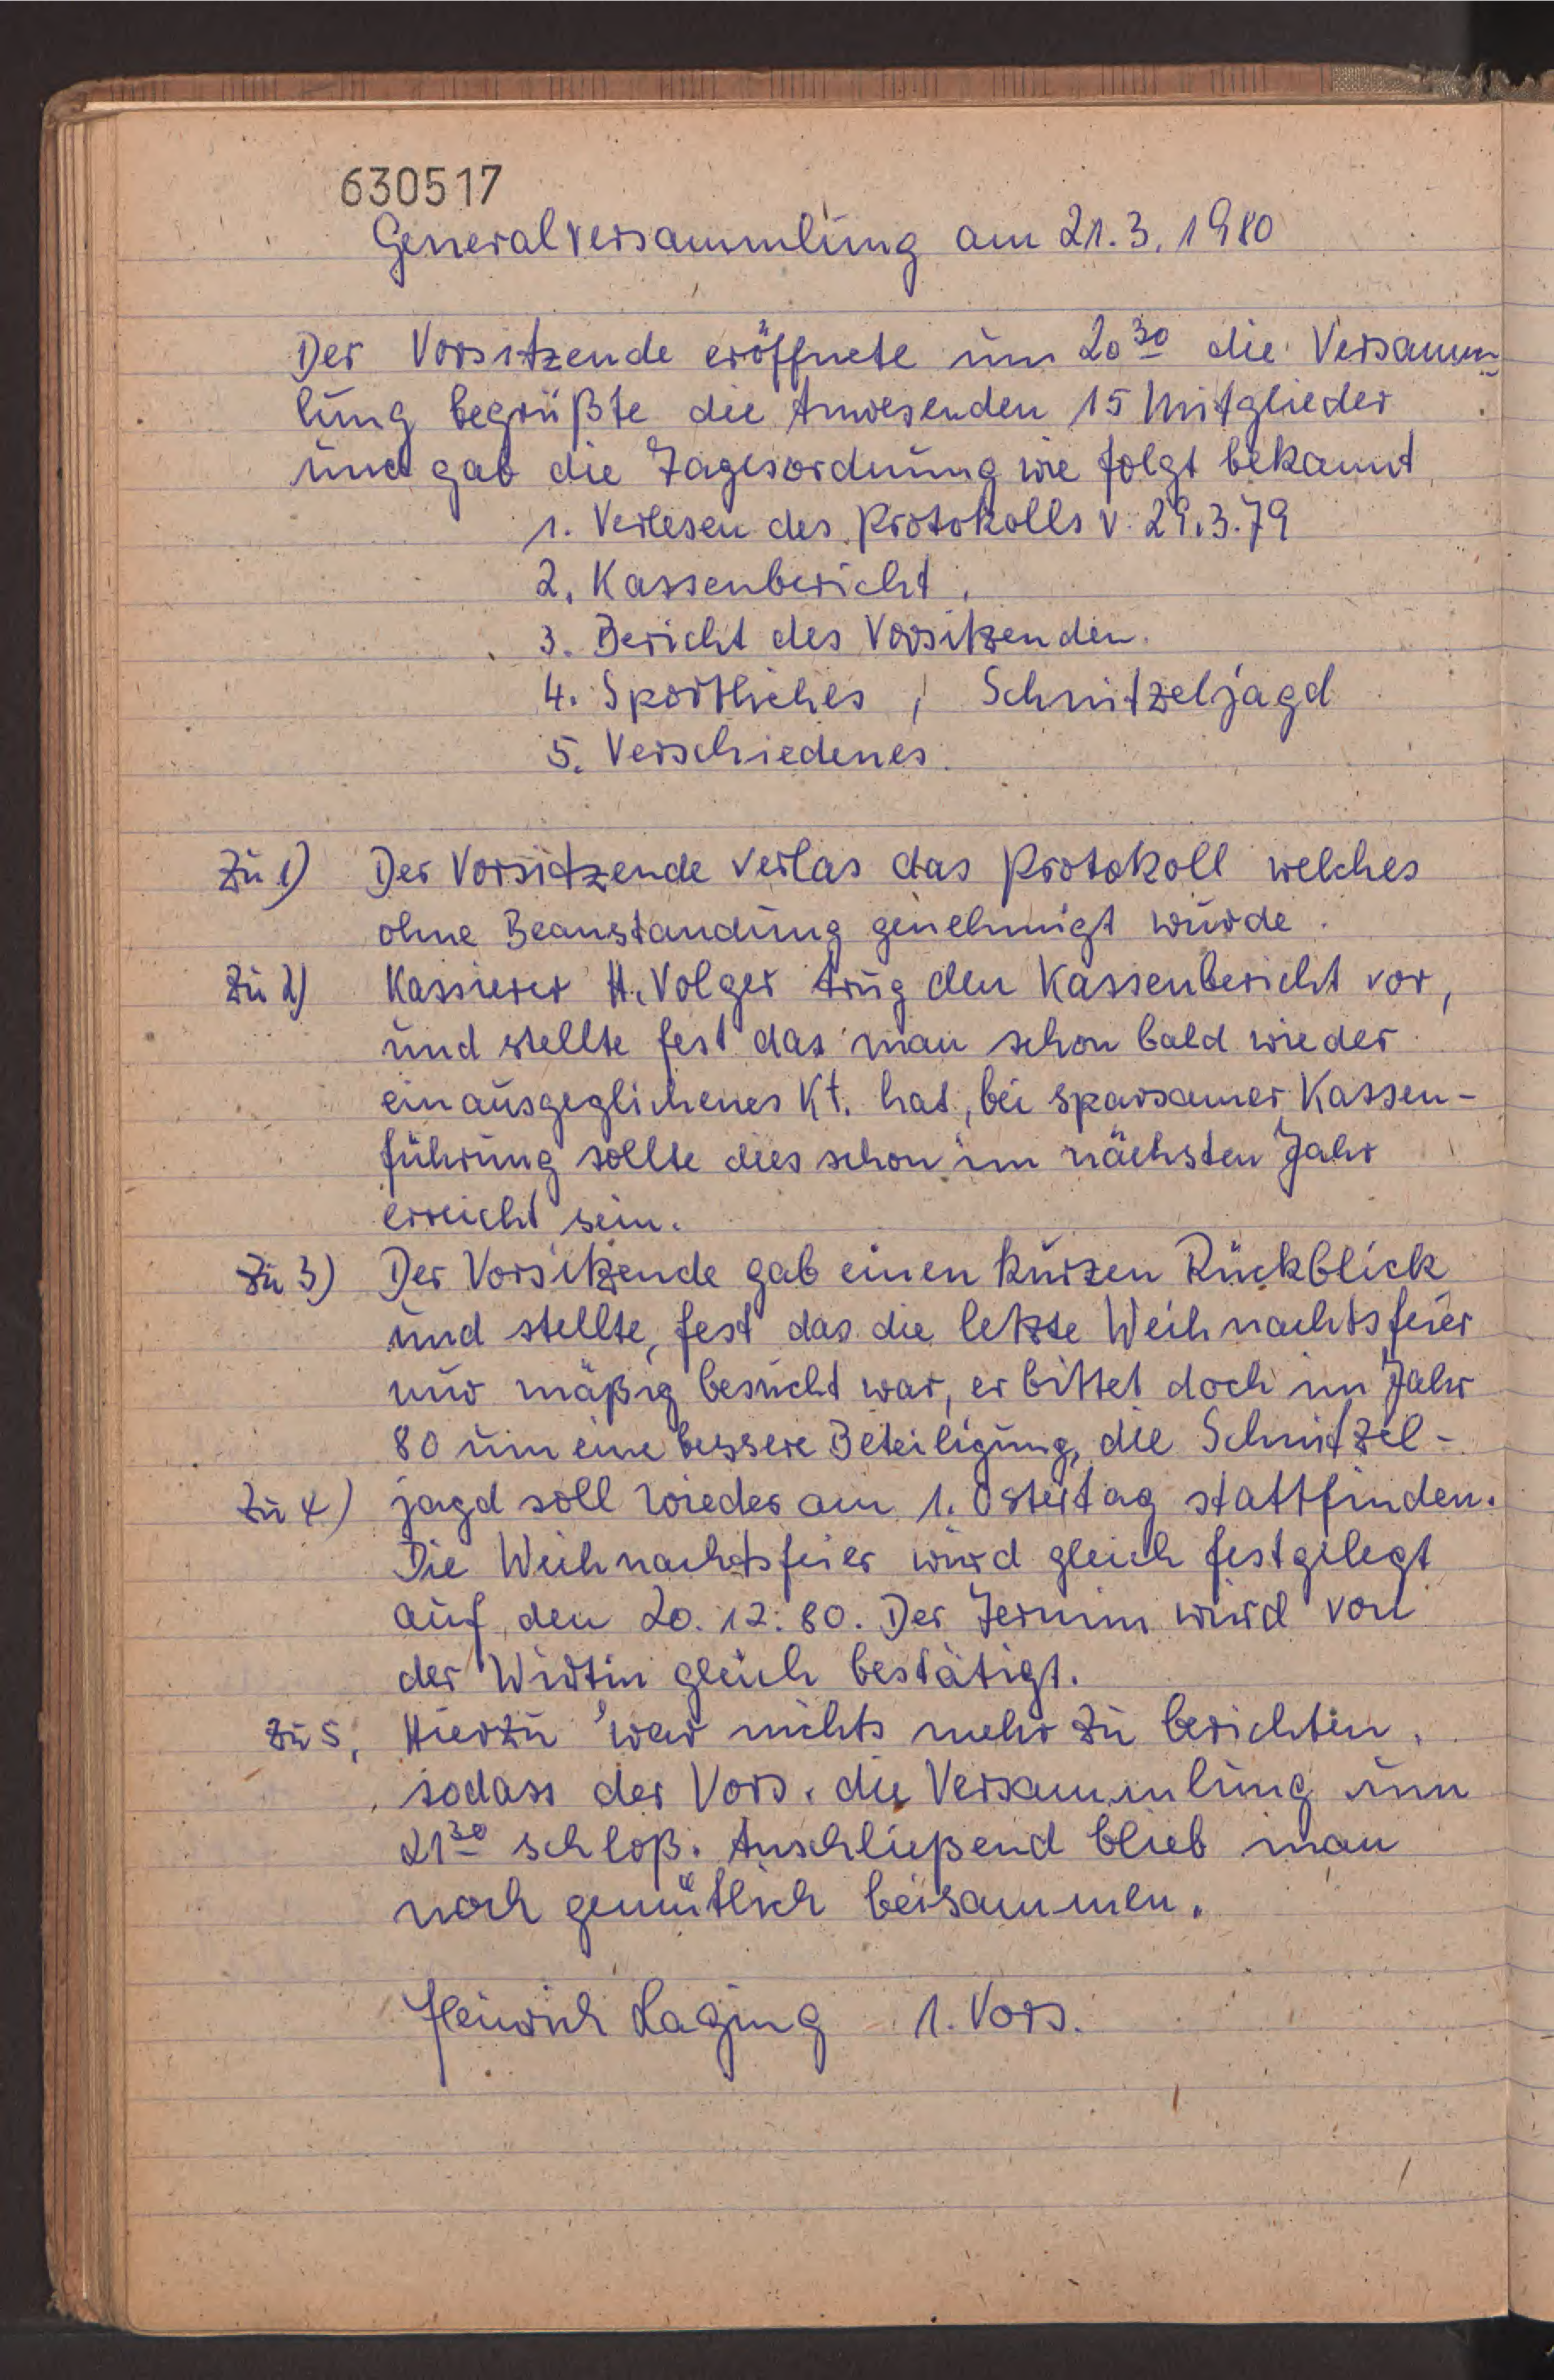 630517
Generalversammlung am 21.3.1980
Der Vorsitzende eröffnete um 20³⁰ die Versamm-
lung begrüßte die Anwesenden 15 Mitglieder
und gab die Tagesordnung wie folgt bekannt
1. Verlesen des Protokolls v. 29.3.79
2. Kassenbericht.
3. Bericht des Vorsitzenden.
4. Sportliches, Schnitzeljagd
5. Verschiedenes.
Zu 1) Der Vorsitzende verlas das Protokoll welches
ohne Beanstandung genehmigt wurde.
Zu 2) Kassierer H. Volger trug den Kassenbericht vor,
und stellte fest das man schon bald wieder
ein ausgeglichenes Kt. hat, bei sparsamer Kassen-
führung sollte dies schon im nächsten Jahr
erreicht sein.
Zu 3) Der Vorsitzende gab einen kurzen Rückblick
und stellte, fest das die letzte Weihnachtsfeier
nur mäßig besucht war, er bittet doch im Jahr
80 um eine bessere Beteiligung, die Schnitzel-
Zu 4) jagd soll wieder am 1. Ostertag stattfinden.
Die Weihnachtsfeier wird gleich festgelegt
auf den 20.12.80. Der Termin wird von
der Wirtin gleich bestätigt.
Zu 5, Hierzu war nichts mehr zu berichten,
sodass der Vors. die Versammlung um
21³⁰ schloß. Anschließend blieb man
noch gemütlich beisammen.
Heinrich Laging 1. Vors.